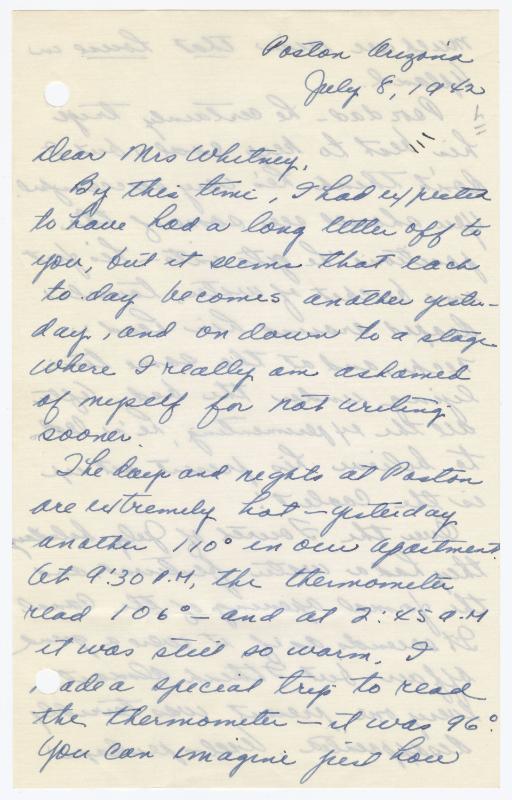 Poston Arizona
July 8, 1942
Dear Mrs Whitney,
By this time, I had expected
to have had a long letter off to
you, but it seems that each
to-day becomes another yester-
day, and on down to a stage
where I really am ashamed
of myself for not writing
sooner.
The days and nights at Poston
are extremely hot — yesterday
another 110° in our apartment.
At 9:30 P.M, the thermometer
read 106° — and at 2:45 A.M
it was still so warm, I
made a special trip to read
the thermometer — it was 96°.
You can imagine just how